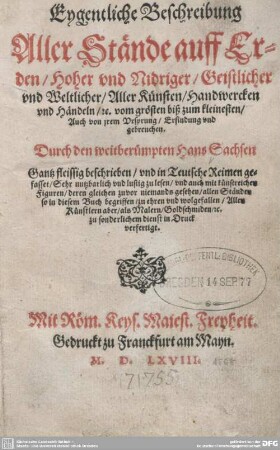 Eygentliche Beschreibung
Aller Stände auff Er-
den/ Hoher vnd Nidriger/ Geistlicher
vnd Weltlicher/ Aller Künsten/ Handwercken
vnd Händeln/ ꝛc. vom grösten biß zum kleinesten/
Auch von jrem Vrsprung/ Erfindung vnd
gebreuchen.
Durch den weitberümpten Hans Sachsen
Gantz fleissig beschrieben/ vnd in Teutsche Reimen ge-
fasset/ Sehr nutzbarlich vnd lustig zu lesen/ vnd auch mit künstreichen
Figuren/ deren gleichen zuvor niemands gesehen/ allen Ständen
so in diesem Buch begriffen/ zu ehren vnd wolgefallen/ Allen
Künstlern aber/ als Malern/ Goldschmiden/ ꝛc.
zu sonderlichem dienst in Druck
verfertigt.
BIBLIOTHEK
DRESDEN 14 SEP 77
Mit Röm. Keys. Maiest. Freyheit.
Gedruckt zu Franckfurt am Mayn.
M. D. LXVIII.
71755